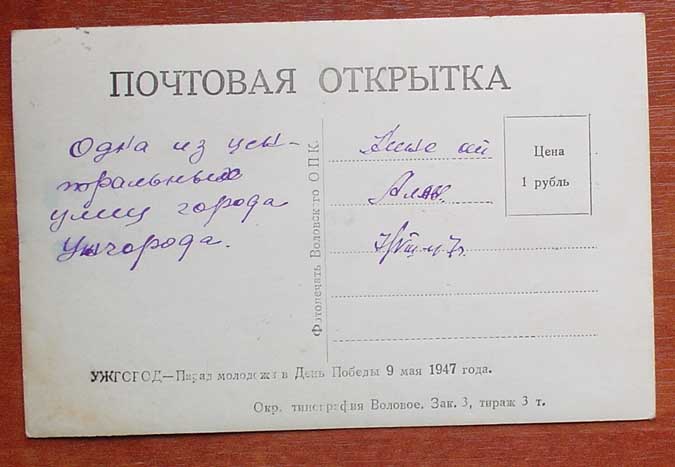 ПОЧТОВАЯ ОТКРЫТКА
Одна из цен-
тральных
улиц города
Ужгорода.
Фотопечать Воловского ОПК.
Цена
1 рубль
УЖГОРОД—Парад молодежи в День Победы 9 мая 1947 года.
Окр. типография Воловое. Зак. 3, тираж 3 т.